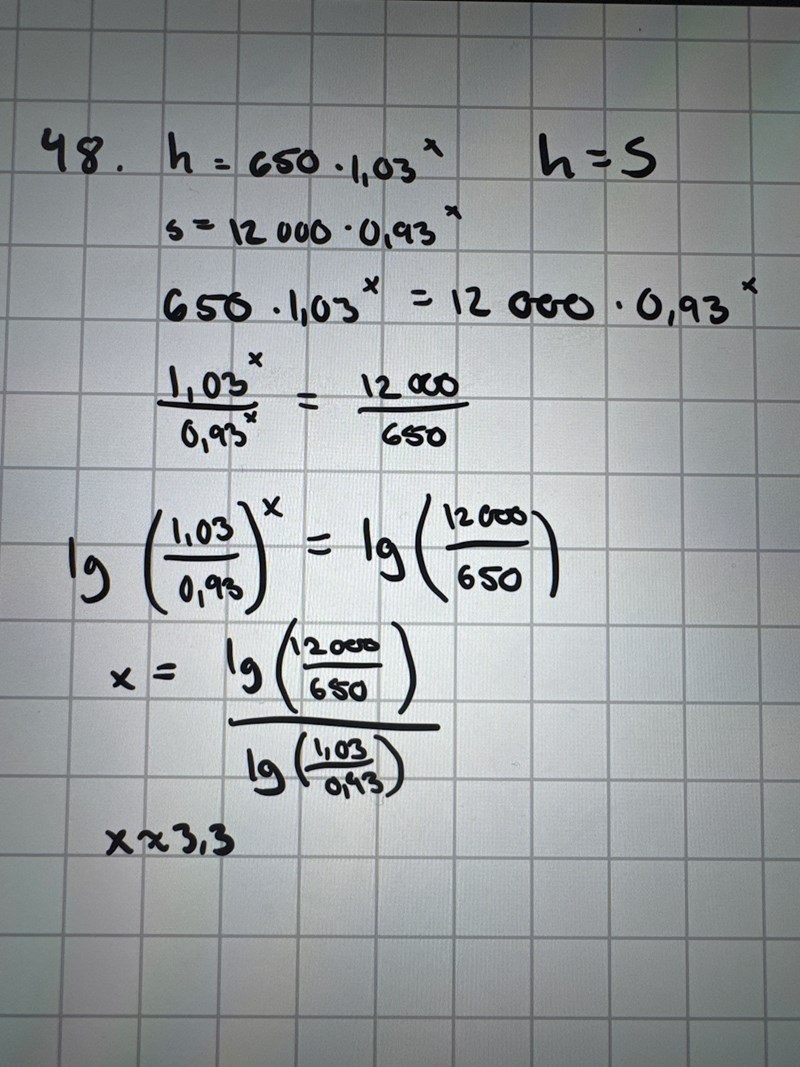 48. h = 650 · 1,03^x h = S
s = 12 000 · 0,93^x
650 · 1,03^x = 12 000 · 0,93^x
1,03^x / 0,93^x = 12 000 / 650
lg (1,03 / 0,93)^x = lg (12 000 / 650)
x = lg (12 000 / 650) / lg (1,03 / 0,93)
x ≈ 3,3